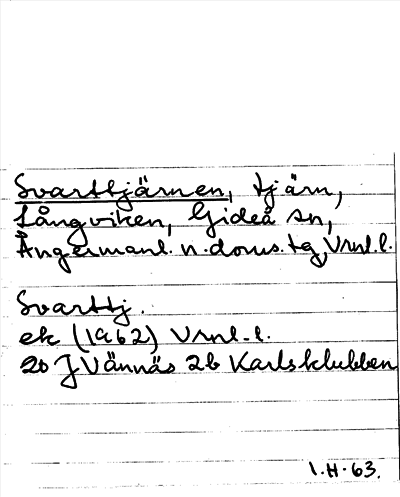 Svarttjärnen, tjärn,
Långviken, Gideå sn,
Ångermanl. n. doms. tg, Vrnl. l.
Svarttj.
ek (1962) Vrnl. l.
20 J Vännäs 2b Karlsklubben
I.H. 63.